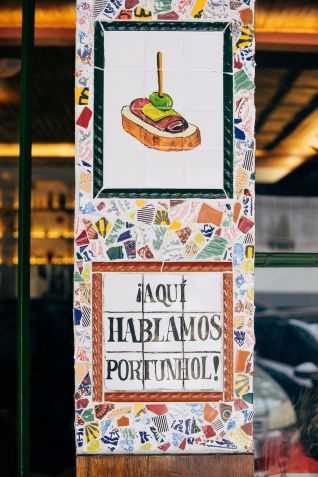 ¡AQUÍ
HABLAMOS
PORTUNHOL!